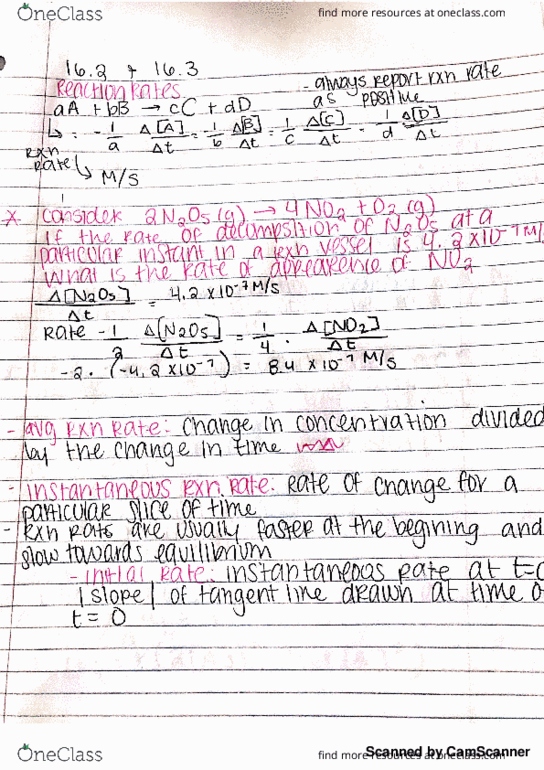 OneClass
find more resources at oneclass.com
16.2 & 16.3
Reaction Rates
- always report rxn rate as positive
aA + bB → cC + dD
↳ = -1/a Δ[A]/Δt = 1/b Δ[B]/Δt = 1/c Δ[C]/Δt = 1/d Δ[D]/Δt
rxn rate ↳ M/s
* Consider 2N₂O₅(g) → 4NO₂ + O₂(g)
If the rate of decompsition of N₂O₅ at a
particular instant in a rxn vessel is 4.2x10⁻⁷ M/
What is the rate of appearence of NO₂
Δ[N₂O₅]/Δt = 4.2x10⁻⁷ M/s
Rate -1/2 Δ[N₂O₅]/Δt = 1/4 · Δ[NO₂]/Δt
-2 · (-4.2x10⁻⁷) = 8.4 x10⁻⁷ M/s
- avg rxn rate: change in concentration divided
by the change in time
- instantaneous rxn rate: rate of change for a
particular slice of time
- Rxn rate are usually faster at the begining and
slow towards equilibrium
- initial rate: instantaneous rate at t=0
|slope| of tangent line drawn at time 0
t = 0
OneClass
find more resources at oneclass.com
Scanned by CamScanner